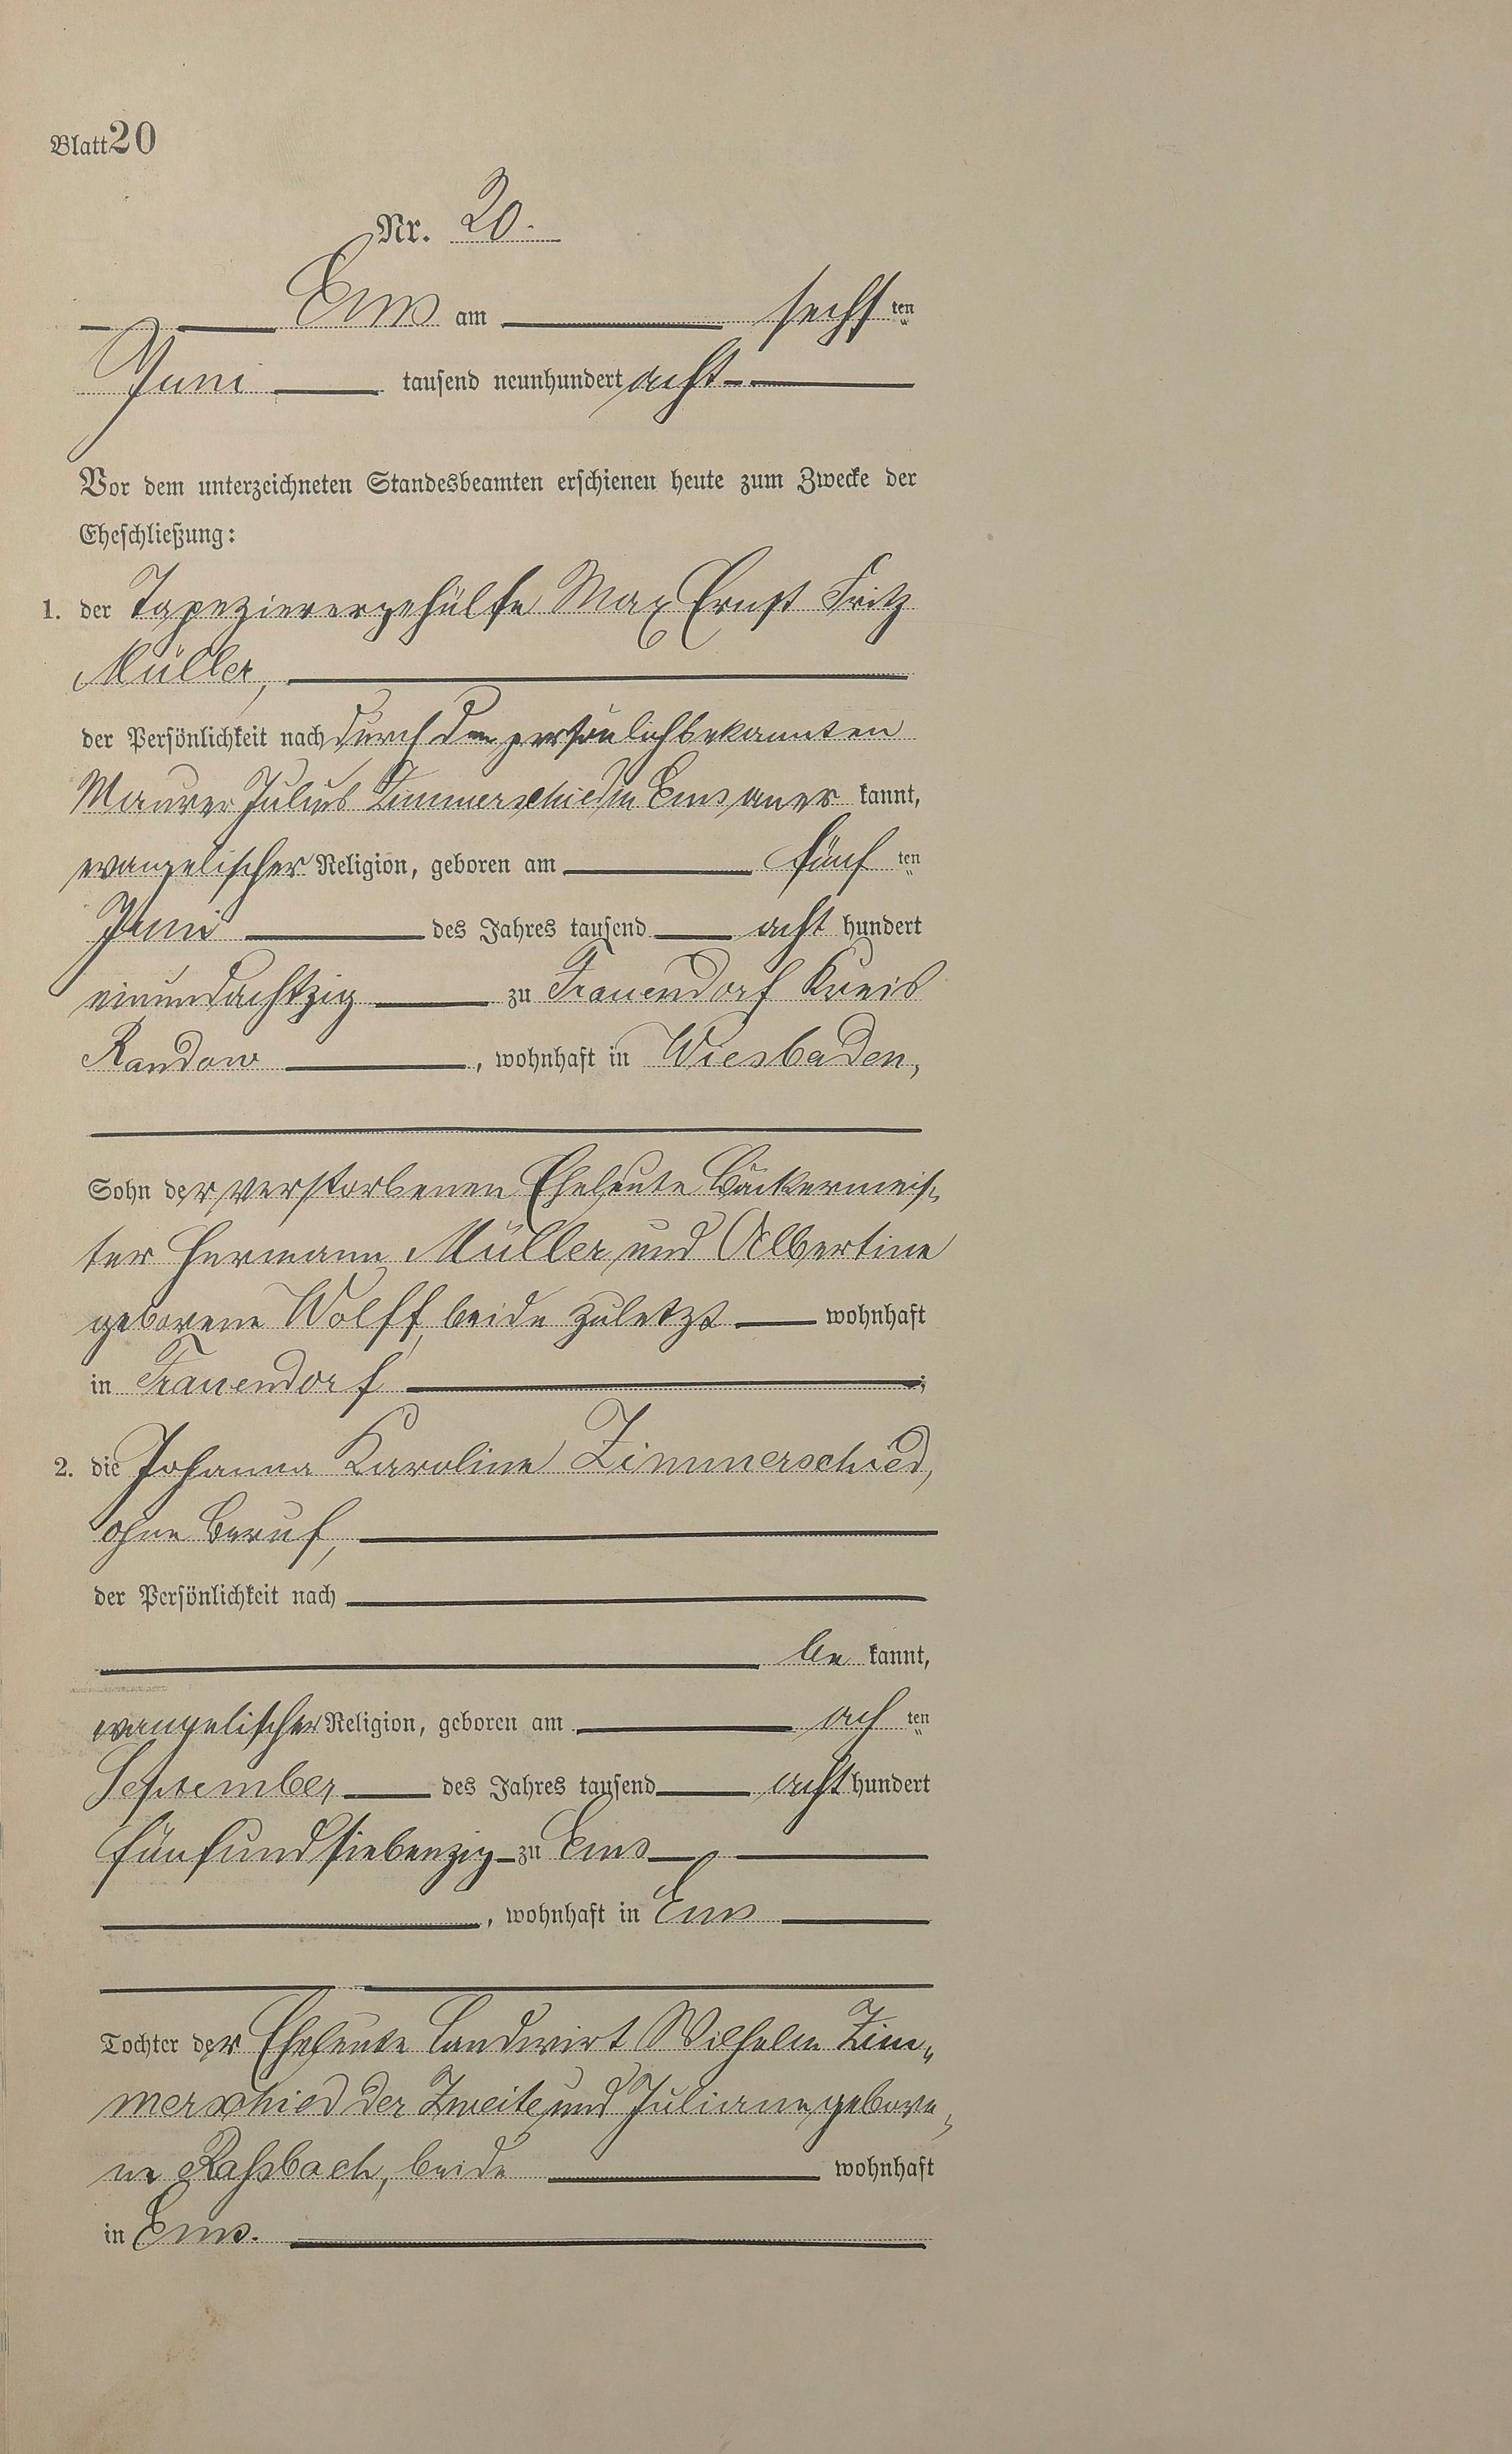 Blatt 20
Nr. 20.
Ems am sechs ten
Juni tausend neunhundert acht
Vor dem unterzeichneten Standesbeamten erschienen heute zum Zwecke der
Eheschließung:
1. der Tapezierergehülfe Max Ernst Fritz
Müller,
der Persönlichkeit nach durch den persönlich bekannten
Maurer Julius Zimmerschied in Ems aner kannt,
evangelischer Religion, geboren am fünf ten
Juni des Jahres tausend acht hundert
einundachtzig zu Frauendorf Kreis
Randow, wohnhaft in Wiesbaden,
Sohn der verstorbenen Eheleute Bäckermeis-
ter Hermann Müller und Albertine
geborene Wolff, beide zuletzt wohnhaft
in Frauendorf;
2. die Johanna Karoline Zimmerschied,
ohne Beruf,
der Persönlichkeit nach
be kannt,
evangelischer Religion, geboren am ach ten
September des Jahres tausend acht hundert
fünfundsiebenzig zu Ems
, wohnhaft in Ems
Tochter der Eheleute Landwirt Wilhelm Zim-
merschied der Zweite und Juliane gebore-
ne Raßbach, beide wohnhaft
in Ems.